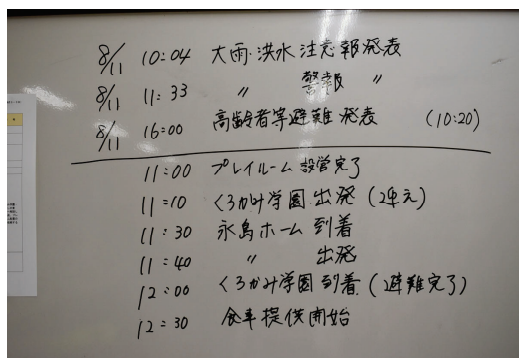 8/11 10:04 大雨・洪水注意報発表
8/11 11:33 〃 警報 〃
8/11 16:00 高齢者等避難発表 (10:20)
11:00 プレイルーム設営完了
11:10 くろかみ学園出発
11:30 永島ホーム到着
11:40 〃 出発
12:00 くろかみ学園到着(避難完了)
12:30 食事提供開始